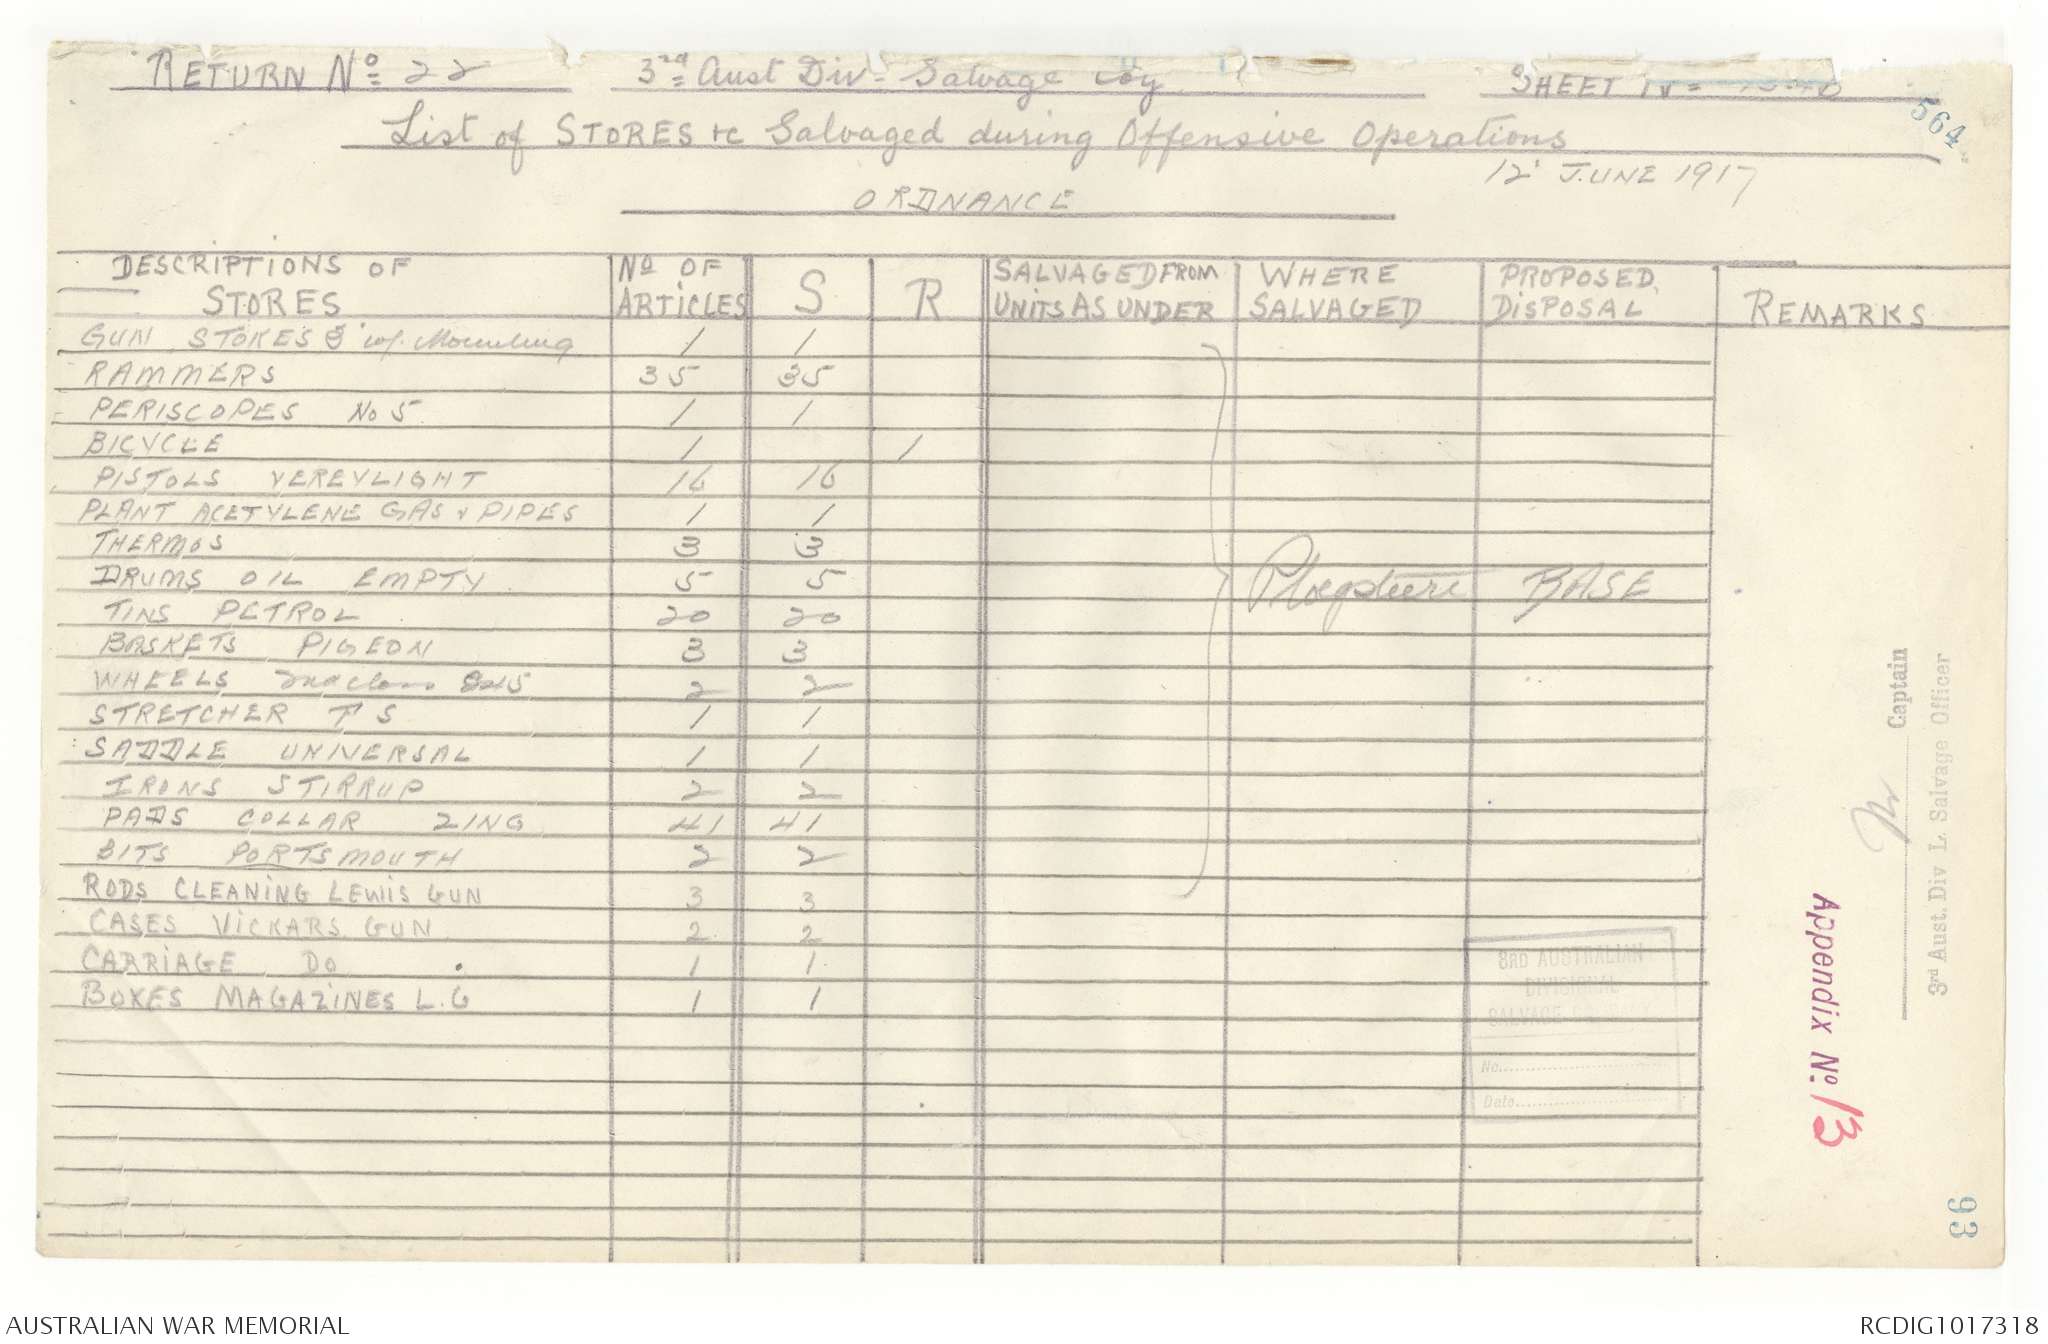 RETURN Nº 22 3rd Aust Div- Salvage Coy SHEET
564
List of STORES +c Salvaged during Offensive Operations
12' JUNE 1917
ORDNANCE
DESCRIPTIONS OF STORES Nº OF ARTICLES S R SALVAGED FROM UNITS AS UNDER WHERE SALVAGED PROPOSED DISPOSAL REMARKS
GUN STOKES 3" w/. Mounting 1 1
RAMMERS 35 35
PERISCOPES No 5 1 1
BICYCLE 1 1
PISTOLS VEREYLIGHT 16 16
PLANT ACETYLENE GAS + PIPES 1 1
THERMOS 3 3
DRUMS OIL EMPTY 5 5 Ploegsteert BASE
TINS PETROL 20 20
BASKETS PIGEON 3 3
WHEELS 2nd class 2 2
STRETCHER 1 1
SADDLE UNIVERSAL 1 1
IRONS STIRRUP 2 2
PADS COLLAR ZING 41 41
BITS PORTSMOUTH 2 2
RODS CLEANING LEWIS GUN 3 3
CASES VICKARS GUN 2 2
CARRIAGE DO 1 1
BOXES MAGAZINES L.G 1 1
3RD AUSTRALIAN
DIVISIONAL
SALVAGE
No.
Date
Captain
3rd Aust. Div L. Salvage Officer
Appendix Nº 13
93
AUSTRALIAN WAR MEMORIAL RCDIG1017318